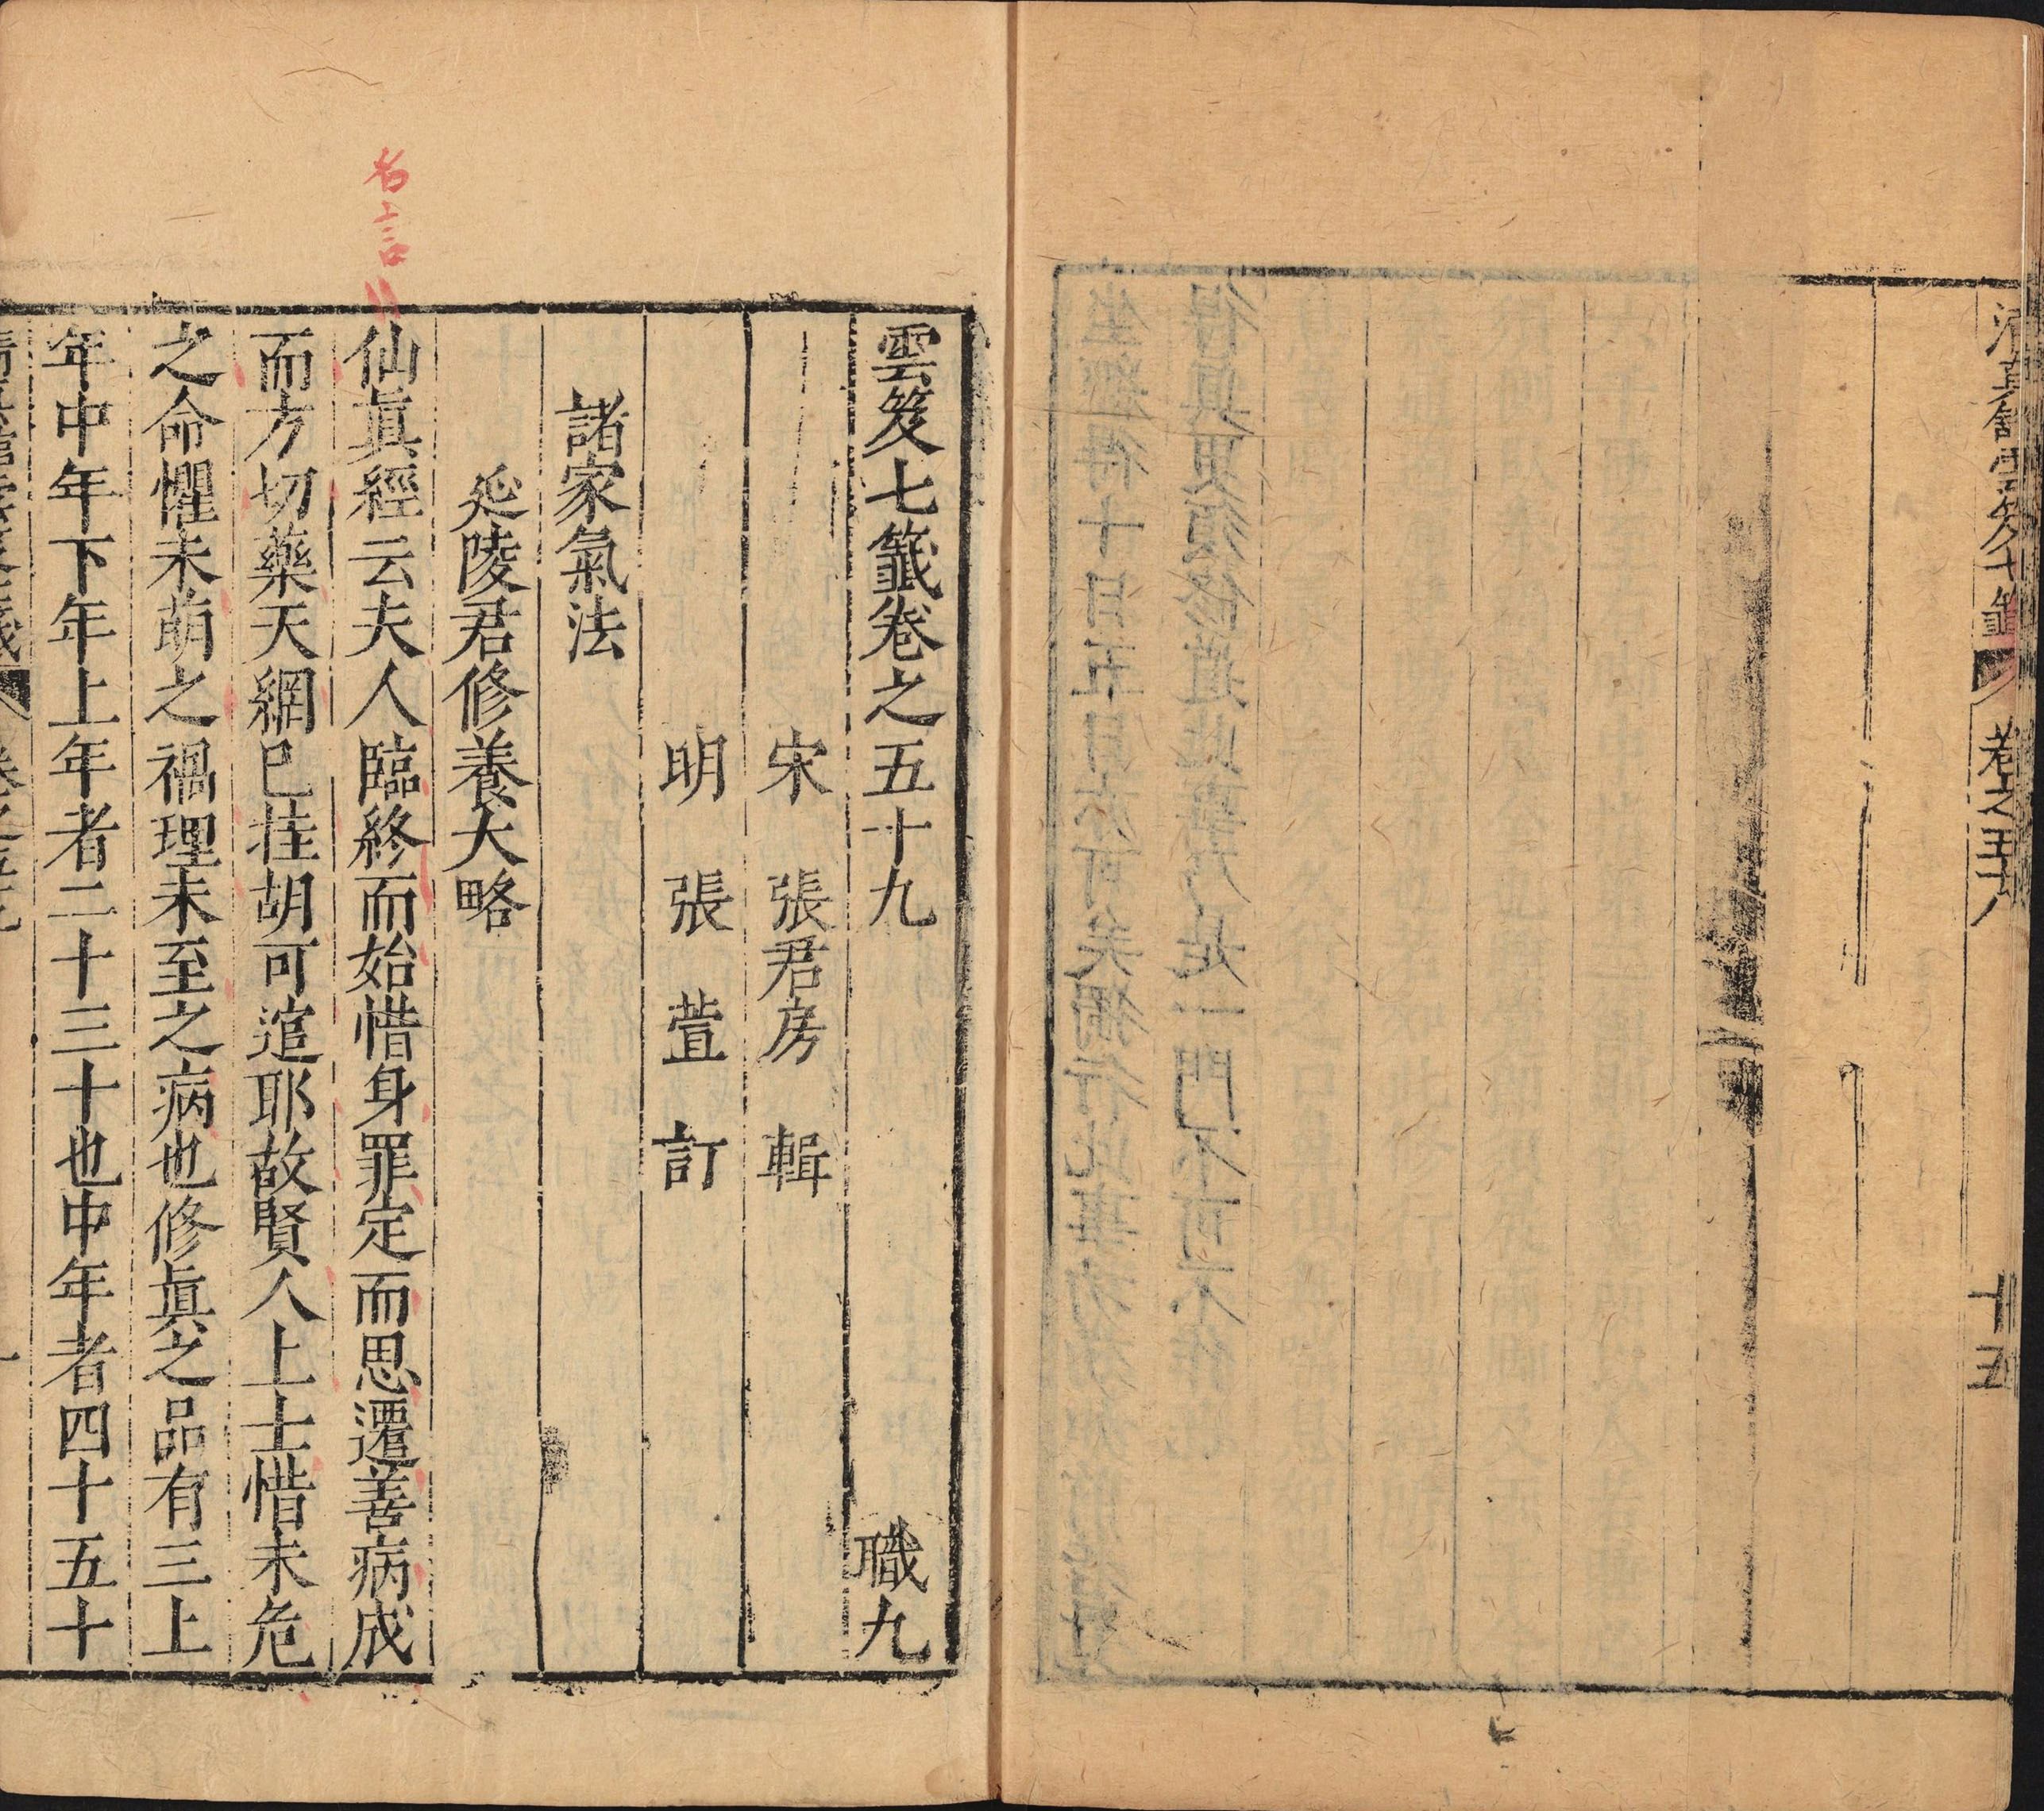 清真館雲笈七籤 卷之五十八 十五
雲笈七籤卷之五十九 職九
宋 張君房 輯
明 張萱 訂
諸家氣法
延陵君修養大略
仙眞經云夫人臨終而始惜身罪定而思遷善病成
而方切藥天網已挂胡可逭耶故賢人上士惜未危
之命懼未萌之禍理未至之病也修眞之品有三上
年中年下年上年者二十三十也中年者四十五十
名言